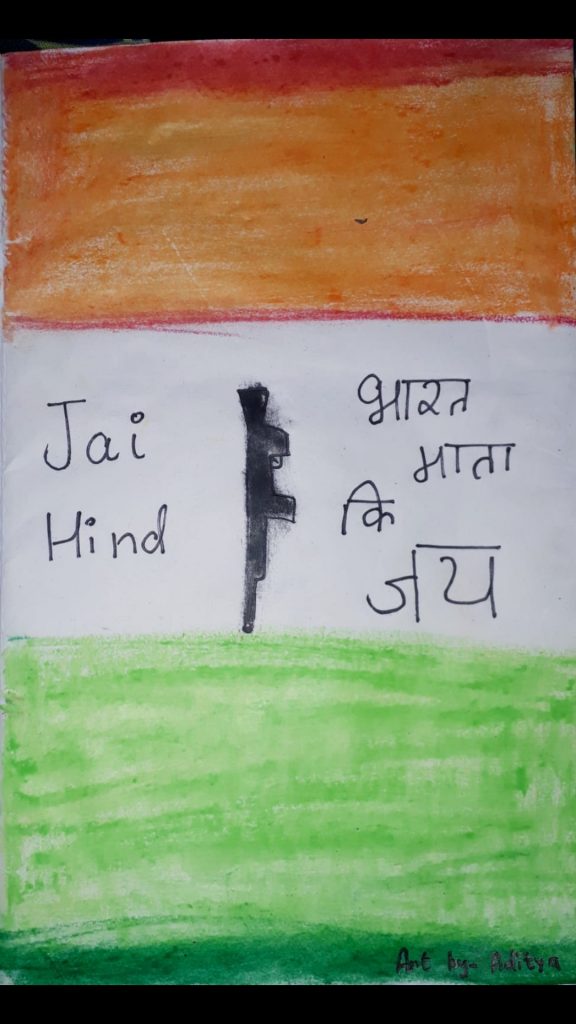 Jai
Hind
भारत
माता
कि
जय
Art by- Aditya